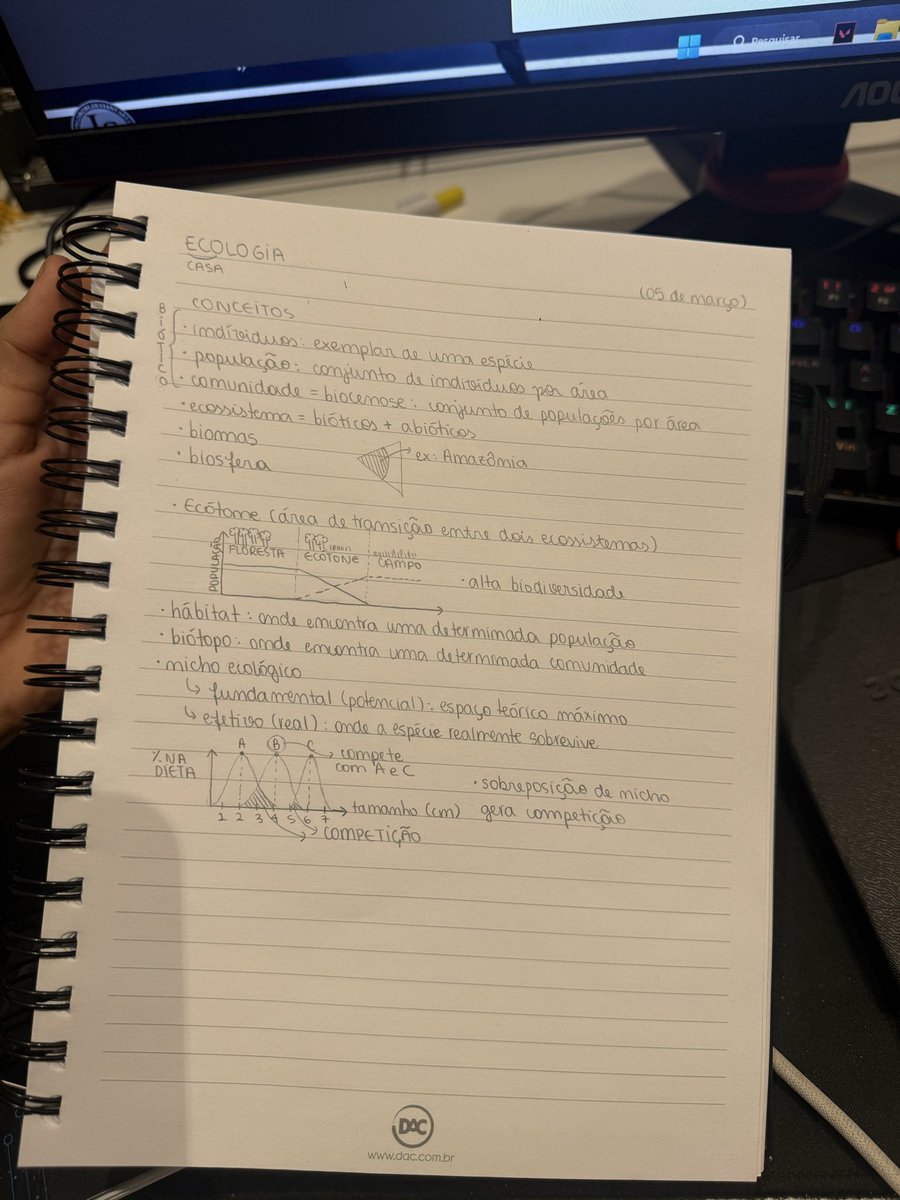 Pesquisar
AOC
ECOLOGIA
CASA
(05 de março)
CONCEITOS
BIÓTICO
· indivíduos: exemplar de uma espécie
· população: conjunto de indivíduos por área
· comunidade = biocenose: conjunto de populações por área
· ecossistema = bióticos + abióticos
· biomas
ex: Amazônia
· biosfera
· Ecótone (área de transição entre dois ecossistemas)
POPULAÇÃO
FLORESTA
ECOTONE
CAMPO
· alta biodiversidade
· hábitat: onde encontra uma determinada população
· biótopo: onde encontra uma determinada comunidade
· nicho ecológico
↳ fundamental (potencial): espaço teórico máximo
↳ efetivo (real): onde a espécie realmente sobrevive
% NA DIETA
A B C
→ compete com A e C
1 2 3 4 5 6 7
tamanho (cm)
→ COMPETIÇÃO
· sobreposição de nicho
gera competição
DAC
www.dac.com.br